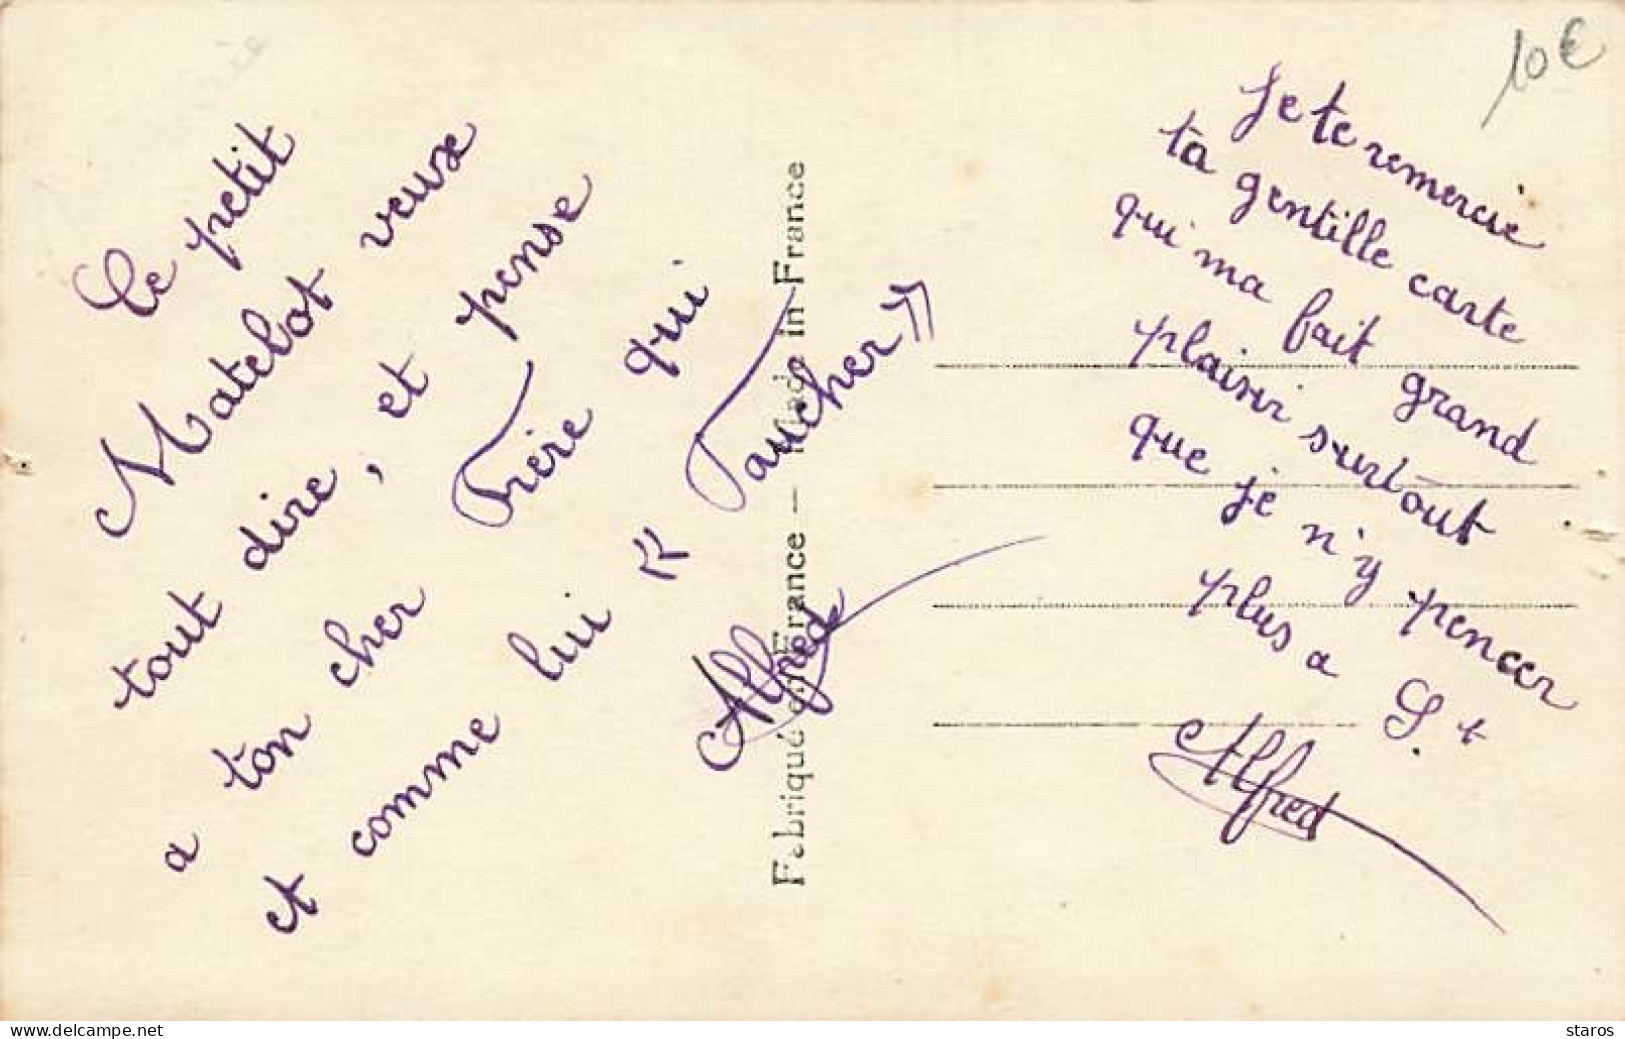 Ce petit
Matelot veux
tout dire, et pense
a ton cher Frère qui
et comme lui « Taucher »
Alfred
Fabriqué en France — Made in France
10€
Je te remercie
ta gentille carte
qui ma fait grand
plaisir surtout
que je n'y pencer
plus a S.t
Alfred
www.delcampe.net
staros